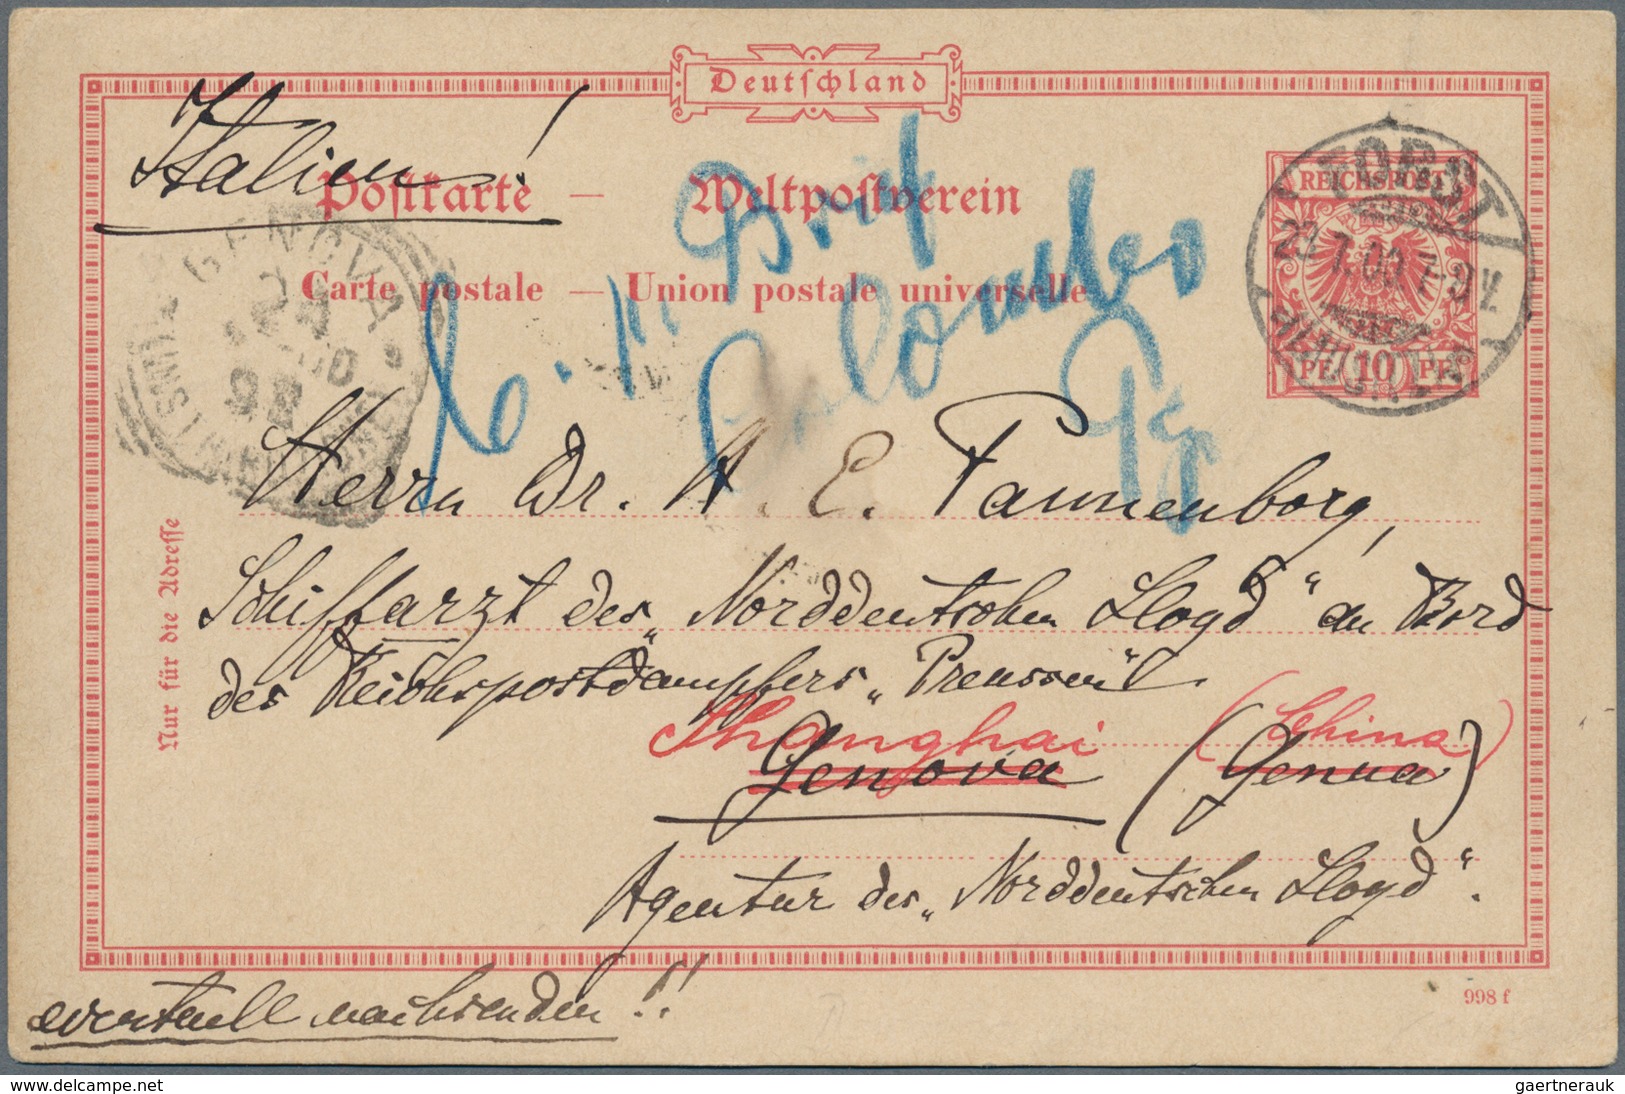 Deutschland
Italien!
Postkarte — Weltpostverein
Carte postale — Union postale universelle
REICHSPOST
PF 10 PF
FORST
GENOVA
Brief
Colombo
Herrn Dr. A. E. Tannenborg,
Schiffarzt des „Norddeutschen Lloyd“ an Bord
des Reichspostdampfers „Preussen“.
Shanghai (China)
Genova (Genua)
Agentur des „Norddeutschen Lloyd“.
Nur für die Adresse
eventuell nachsenden!!
998 f
www.delcampe.net
gaertnerauk